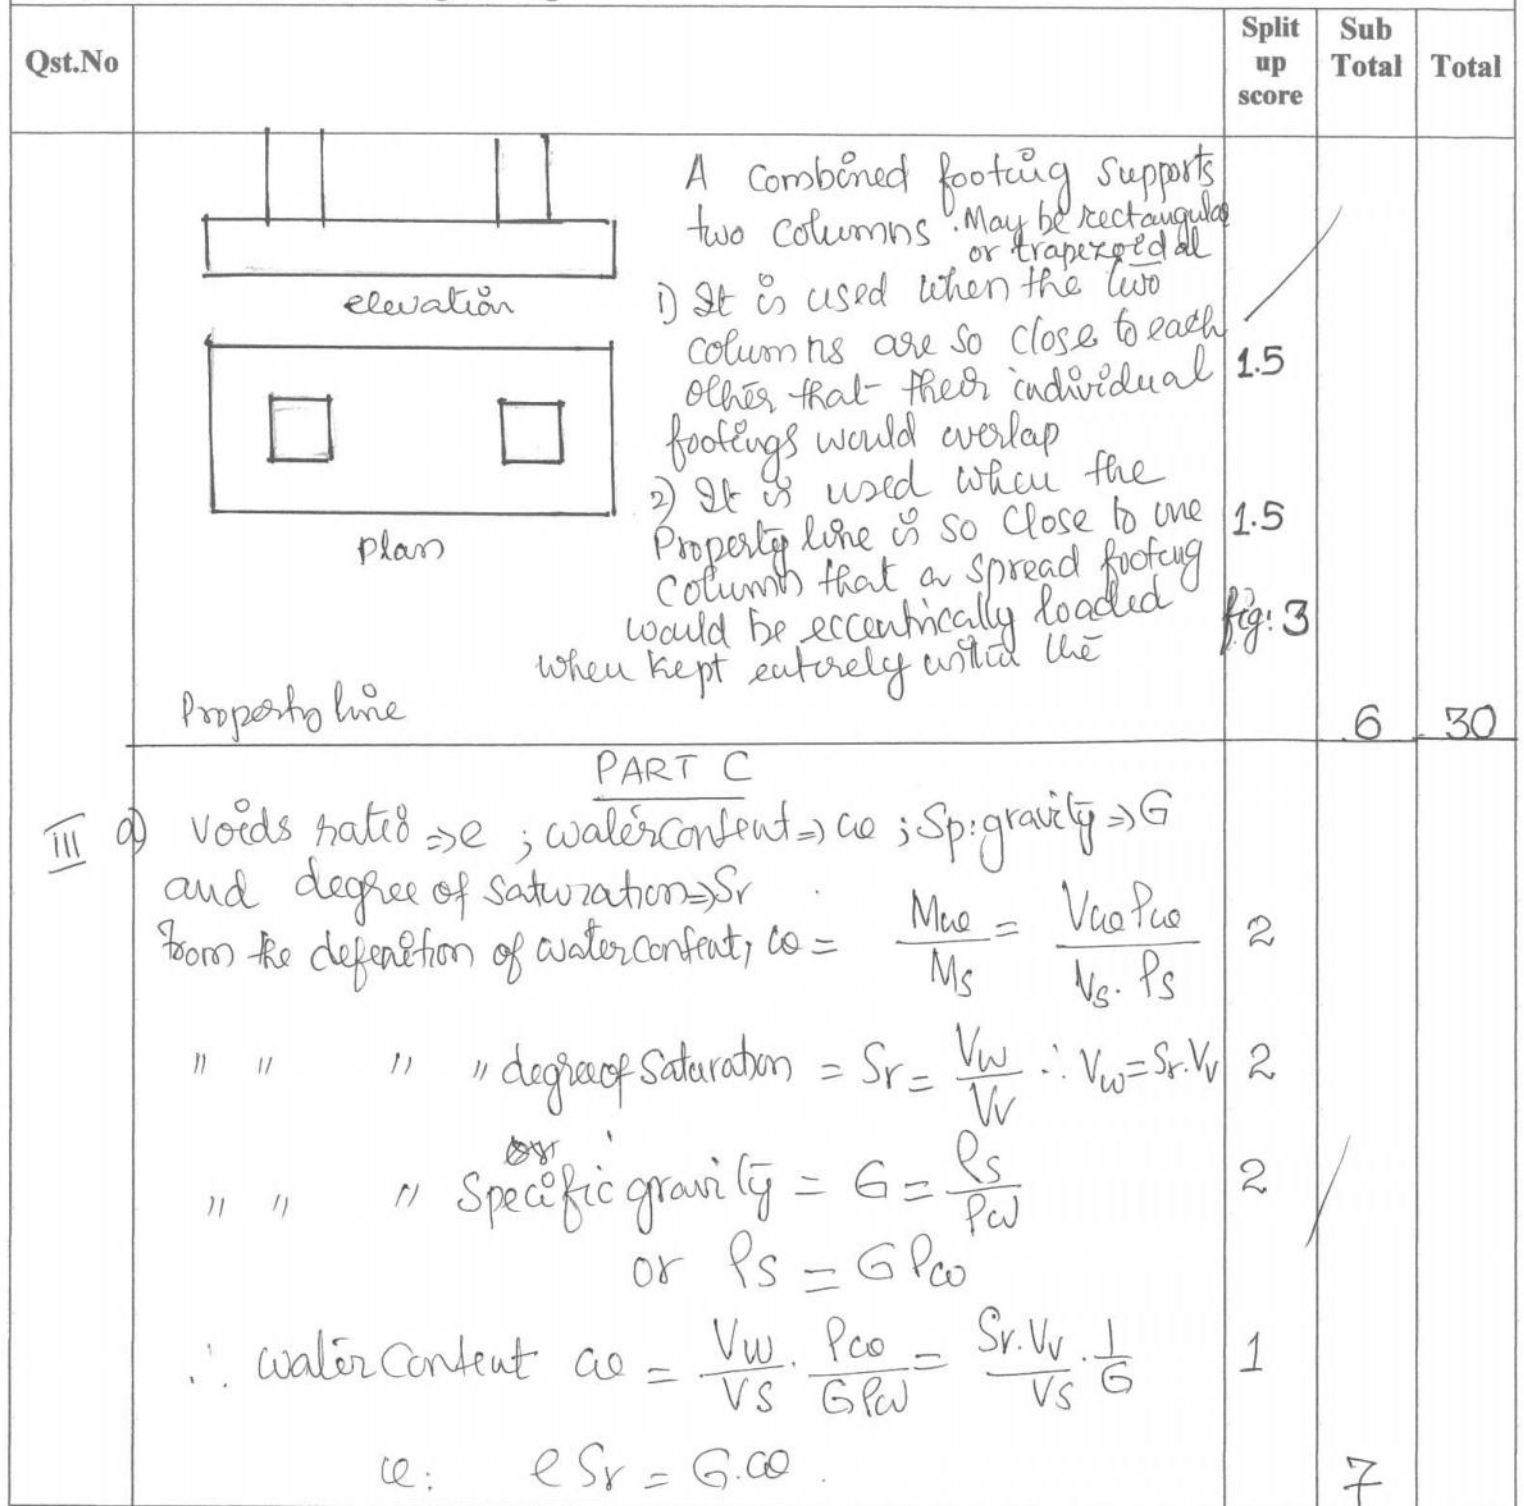 Qst.No
Split up score
Sub Total
Total
A Combined footing Supports
two columns. May be rectangular
or trapezoidal
1) It is used when the two
columns are so close to each
other that their individual
footings would overlap
1.5
2) It is used when the
Property line is so close to one
column that a spread footing
would be eccentrically loaded
when kept entirely within the
Property line
1.5
fig: 3
elevation
plan
6
30
PART C
III a) Voids ratio ⇒ e ; water content ⇒ w ; Sp: gravity ⇒ G
and degree of saturation ⇒ Sr
from the defenition of water content, w = Mw/Ms = Vwρw/Vs.ρs 2
" " " " degree of Saturation = Sr = Vw/Vv ∴ Vw = Sr.Vv 2
" " " Specific gravity = G = ρs/ρw 2
or ρs = Gρw
∴ water Content w = Vw/Vs . ρw/Gρw = Sr.Vv/Vs . 1/G 1
ie: eSr = G.w.
7